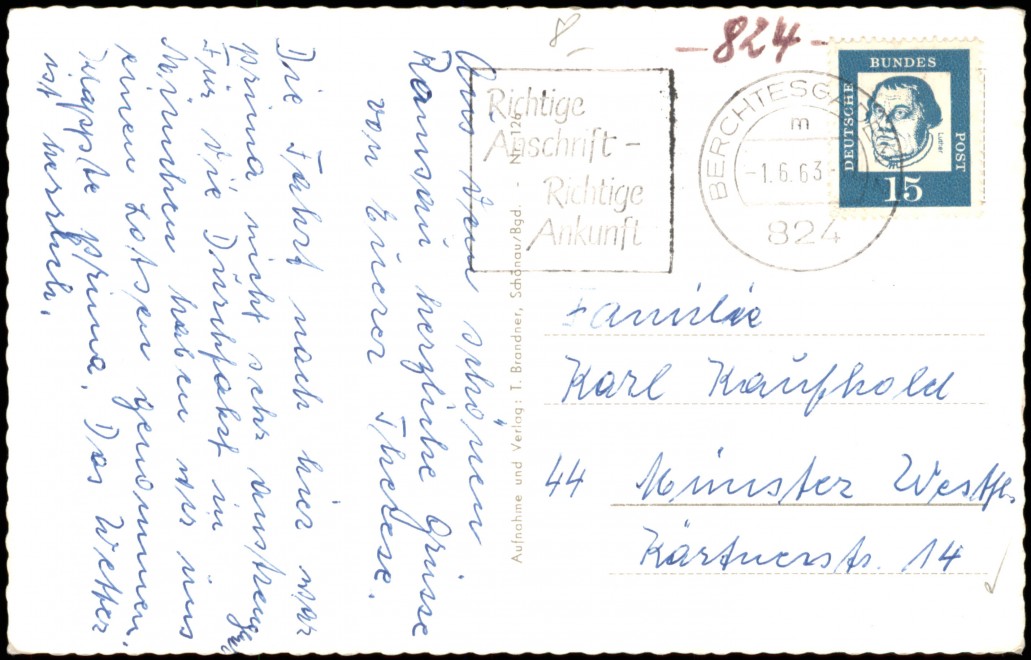 8
-824-
DEUTSCHE
BUNDES
POST
Luther
15
BERCHTESGADEN
m
-1.6.63-
824
Richtige
Anschrift -
Richtige
Ankunft
Aus dem schönen
Ramsau herzliche Grüsse
von Eurer Therese.
Die Fahrt nach hier war
prima nicht sehr anstrengend
Für die Durchfahrt in
München haben wir uns
einen Lotsen genommen.
Klappte prima. Das Wetter
ist herrlich.
Aufnahme und Verlag: T. Brandner, Schönau/Bgd. - Nr. 126
Familie
Karl Kaufhold
44 Münster Westf.
Kärtnerstr. 14